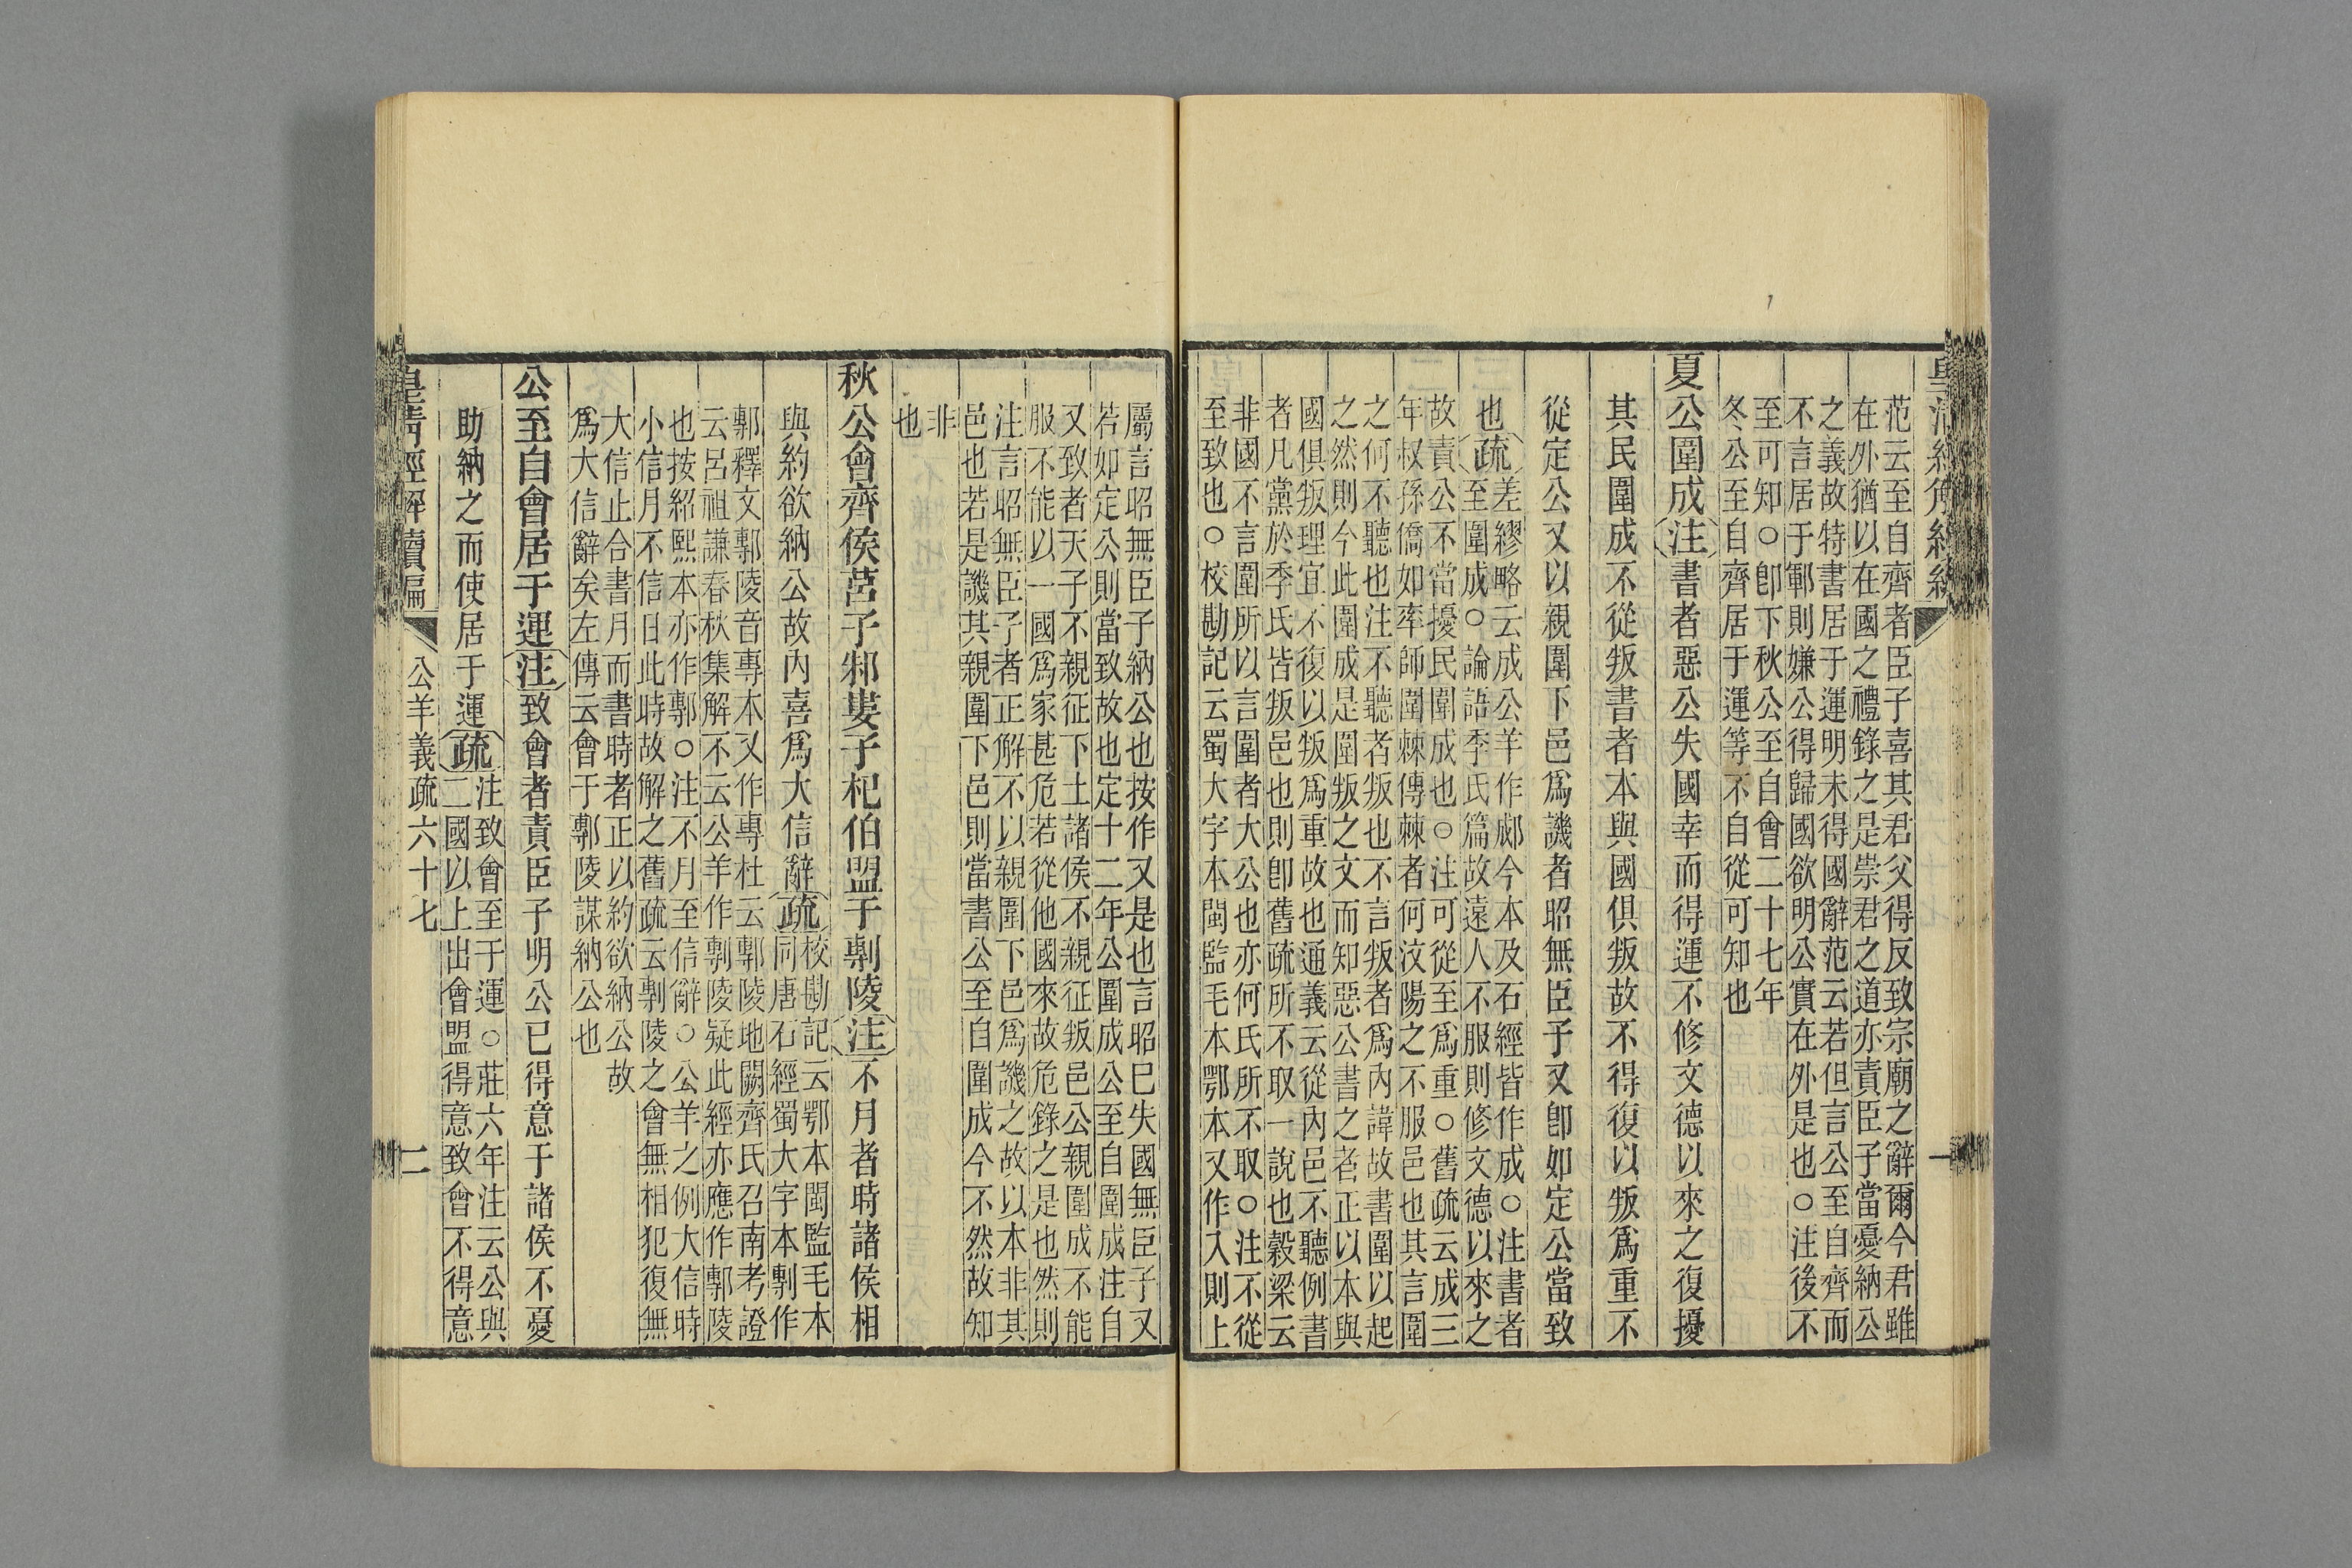 范云至自齊者臣子喜其君父得反致宗廟之辭爾今君雖
在外猶以在國之禮錄之是崇君之道亦責臣子當憂納公
之義故特書居于運明未得國辭范云若但言公至自齊而
不言居于鄆則嫌公得歸國欲明公實在外是也○注後不
至可知○卽下秋公至自會二十七年
冬公至自齊居于運等不自從可知也
夏公圍成注書者惡公失國幸而得運不修文德以來之復擾
其民圍成不從叛書者本與國俱叛故不得復以叛爲重不
從定公又以親圍下邑爲譏者昭無臣子又卽如定公當致
也疏差繆略云成公羊作郕今本及石經皆作成○注書者
至圍成○論語季氏篇故遠人不服則修文德以來之
故責公不當擾民圍成也○注可從至爲重○舊疏云成三
年叔孫僑如率師圍棘傳棘者何汶陽之不服邑也其言圍
之何不聽也注不聽者叛也不言叛者爲內諱故書圍以起
之然則今此圍成是圍叛之文而知惡公書之者正以本與
國俱叛理宜不復以叛爲重故也通義云從內邑不聽例書
者凡黨於季氏皆叛邑也則卽舊疏所不取一說也穀梁云
非國不言圍所以言圍者大公也亦何氏所不取○注不從
至致也○校勘記云蜀大字本閩監毛本鄂本又作入則上
屬言昭無臣子納公也按作又是也言昭已失國無臣子又
若如定公則當致故也定十二年公圍成公至自圍成注自
又致者天子不親征下土諸侯不親征叛邑公親圍成不能
服不能以一國爲家甚危若從他國來故危錄之是也然則
注言昭無臣子者正解不以親圍下邑爲譏之故以本非其
邑也若是譏其親圍下邑則當書公至自圍成今不然故知
非
也
秋公會齊侯莒子邾婁子杞伯盟于剸陵注不月者時諸侯相
與約欲納公故內喜爲大信辭疏校勘記云鄂本閩監毛本
同唐石經蜀大字本剸作
鄟釋文鄟陵音專本又作專杜云鄟陵地闕齊氏召南考證
云呂祖謙春秋集解不云公羊作剸陵疑此經亦應作鄟陵
也按紹熙本亦作鄟○注不月至信辭○公羊之例大信時
小信月不信日此時故解之舊疏云剸陵之會無相犯復無
大信止合書月而書時者正以約欲納公故
爲大信辭矣左傳云會于鄟陵謀納公也
公至自會居于運注致會者責臣子明公已得意于諸侯不憂
助納之而使居于運疏注致會至于運○莊六年注云公與
二國以上出會盟得意致會不得意
皇清經解續編
公羊義疏六十七
二